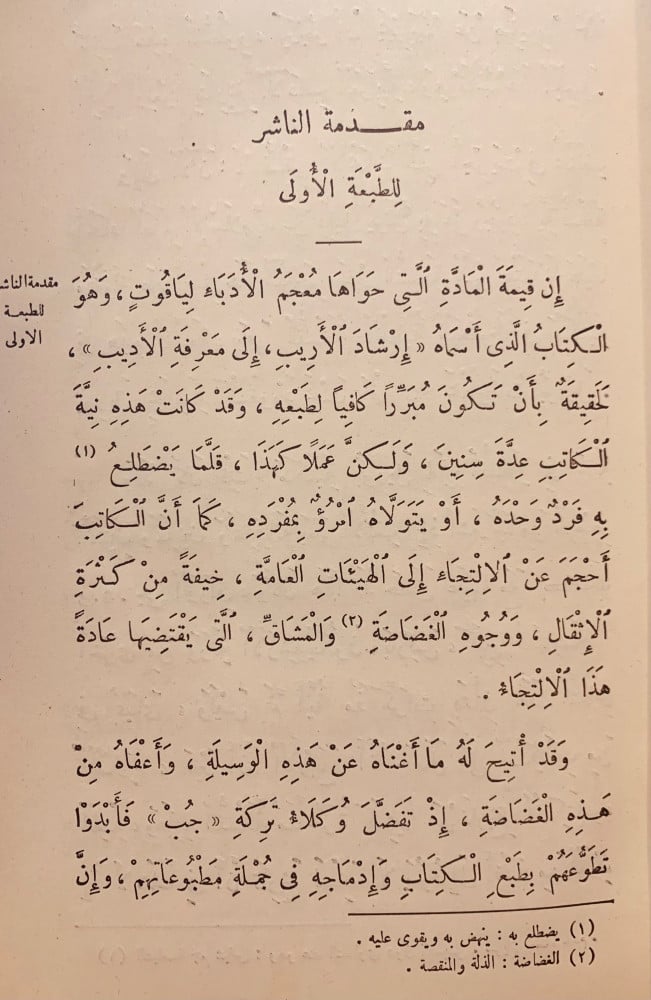 مقدمة الناشر
لِلطَّبْعَةِ الْأُولَى
مقدمة الناشر
للطبعة
الاولى
إِن قِيمَةَ الْمَادَّةِ الَّتِي حَوَاهَا مُعْجَمُ الْأُدَبَاءِ لِيَاقُوتٍ، وَهُوَ
الْكِتَابُ الَّذِى أَسْمَاهُ «إِرْشَادَ الْأَرِيبِ، إِلَى مَعْرِفَةِ الْأَدِيبِ»،
لَحَقِيقَةٌ بِأَنْ تَكُونَ مُبَرِّراً كَافِياً لِطَبْعِهِ، وَقَدْ كَانَتْ هَذِهِ نِيَّةَ
الْكَاتِبِ عِدَّةَ سِنِينَ، وَلَكِنَّ عَمَلًا كَهَذَا، قَلَّمَا يَضْطَلِعُ (١)
بِهِ فَرْدٌ وَحْدَهُ، أَوْ يَتَوَلَّاهُ امْرُؤٌ بِمُفْرَدِهِ، كَمَا أَنَّ الْكَاتِبَ
أَحْجَمَ عَنْ الِالْتِجَاءِ إِلَى الْهَيْئَاتِ الْعَامَّةِ، خِيفَةً مِنْ كَثْرَةِ
الْإِثْقَالِ، وَوُجُوهِ الْغَضَاضَةِ (٢) وَالْمَشَاقِّ، الَّتِى يَقْتَضِيهَا عَادَةً
هَذَا الِالْتِجَاءُ.
وَقَدْ أُتِيحَ لَهُ مَا أَغْنَاهُ عَنْ هَذِهِ الْوَسِيلَةِ، وَأَعْفَاهُ مِنْ
هَذِهِ الْغَضَاضَةِ، إِذْ تَفَضَّلَ وُكَلَاءُ تَرِكَةِ «جُبْ» فَأَبْدَوْا
تَطَوُّعَهُمْ بِطَبْعِ الْكِتَابِ وَإِدْمَاجِهِ فِى جُمْلَةِ مَطْبُوعَاتِهِمْ، وَإِنَّ
(١) يضطلع به : ينهض به ويقوى عليه .
(٢) الغضاضة : الذلة والمنقصة .